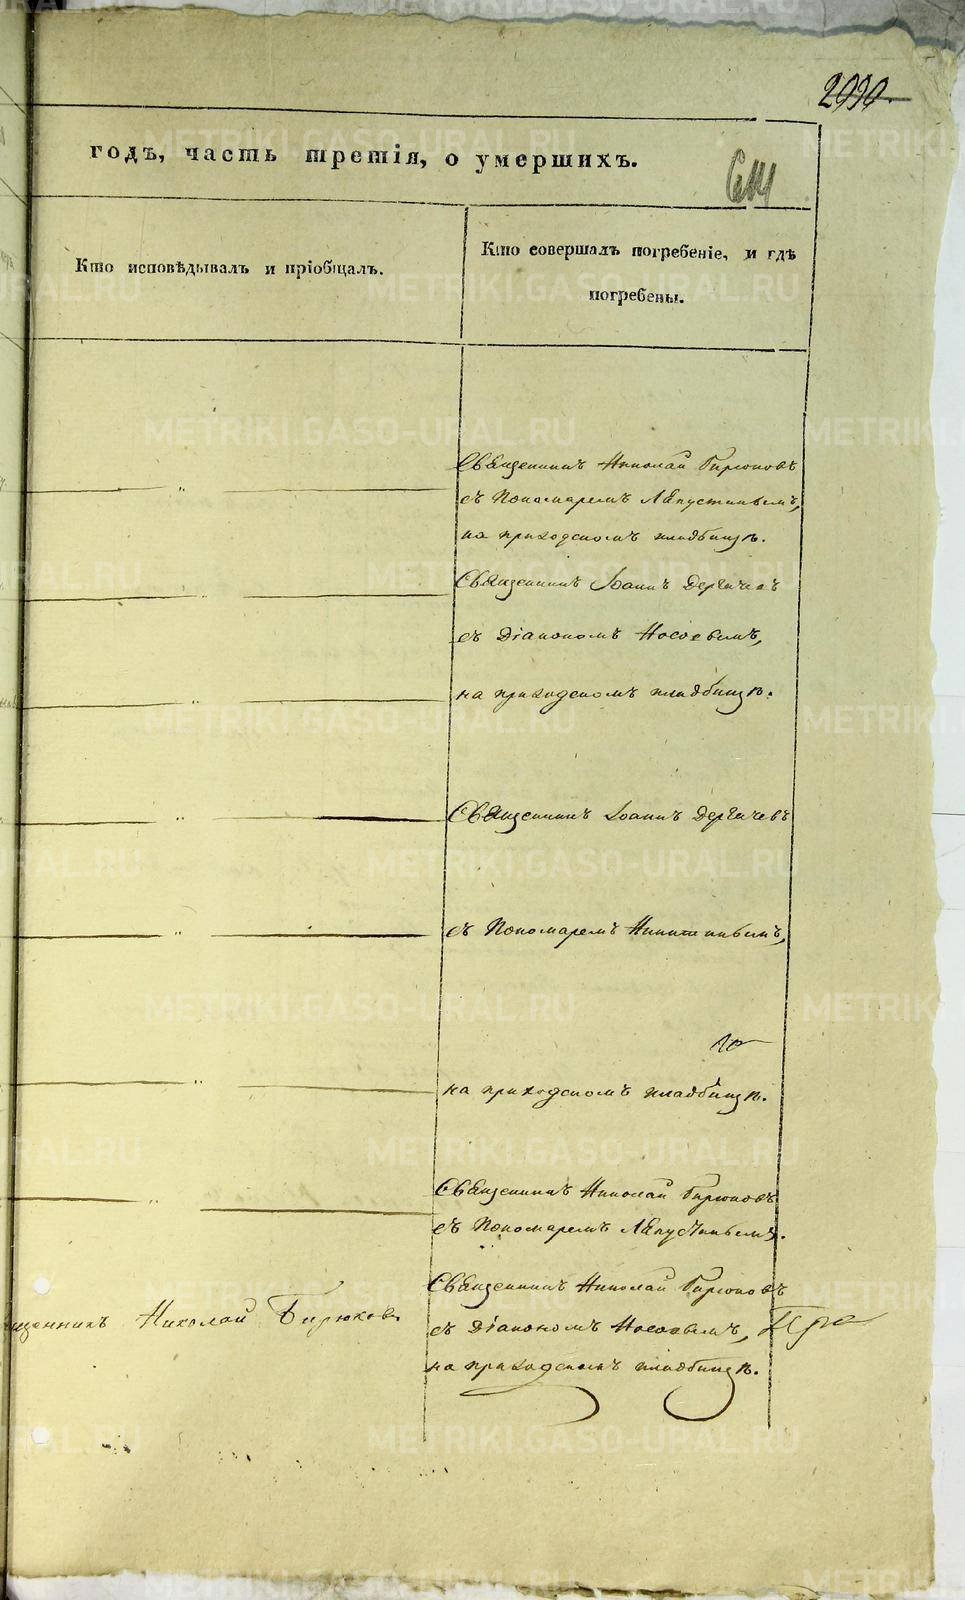 2090
годъ, часть третія, о умершихъ.
Кто исповѣдывалъ и пріобщалъ.
Кто совершалъ погребеніе, и гдѣ
погребены.
Священникъ Николай Бирюковъ
съ Пономаремъ Ляпустинымъ,
на приходскомъ кладбищѣ.
Священникъ Іоаннъ Дергачевъ
съ Діакономъ Носовымъ,
на приходскомъ кладбищѣ.
Священникъ Іоаннъ Дергачевъ
съ Пономаремъ Никитинымъ,
на приходскомъ кладбищѣ.
Священникъ Николай Бирюковъ
съ Пономаремъ Ляпустинымъ.
щенникъ Николай Бирюковъ
Священникъ Николай Бирюковъ
съ Діакономъ Носовымъ,
на приходскомъ кладбищѣ.
METRIKI.GASO-URAL.RU